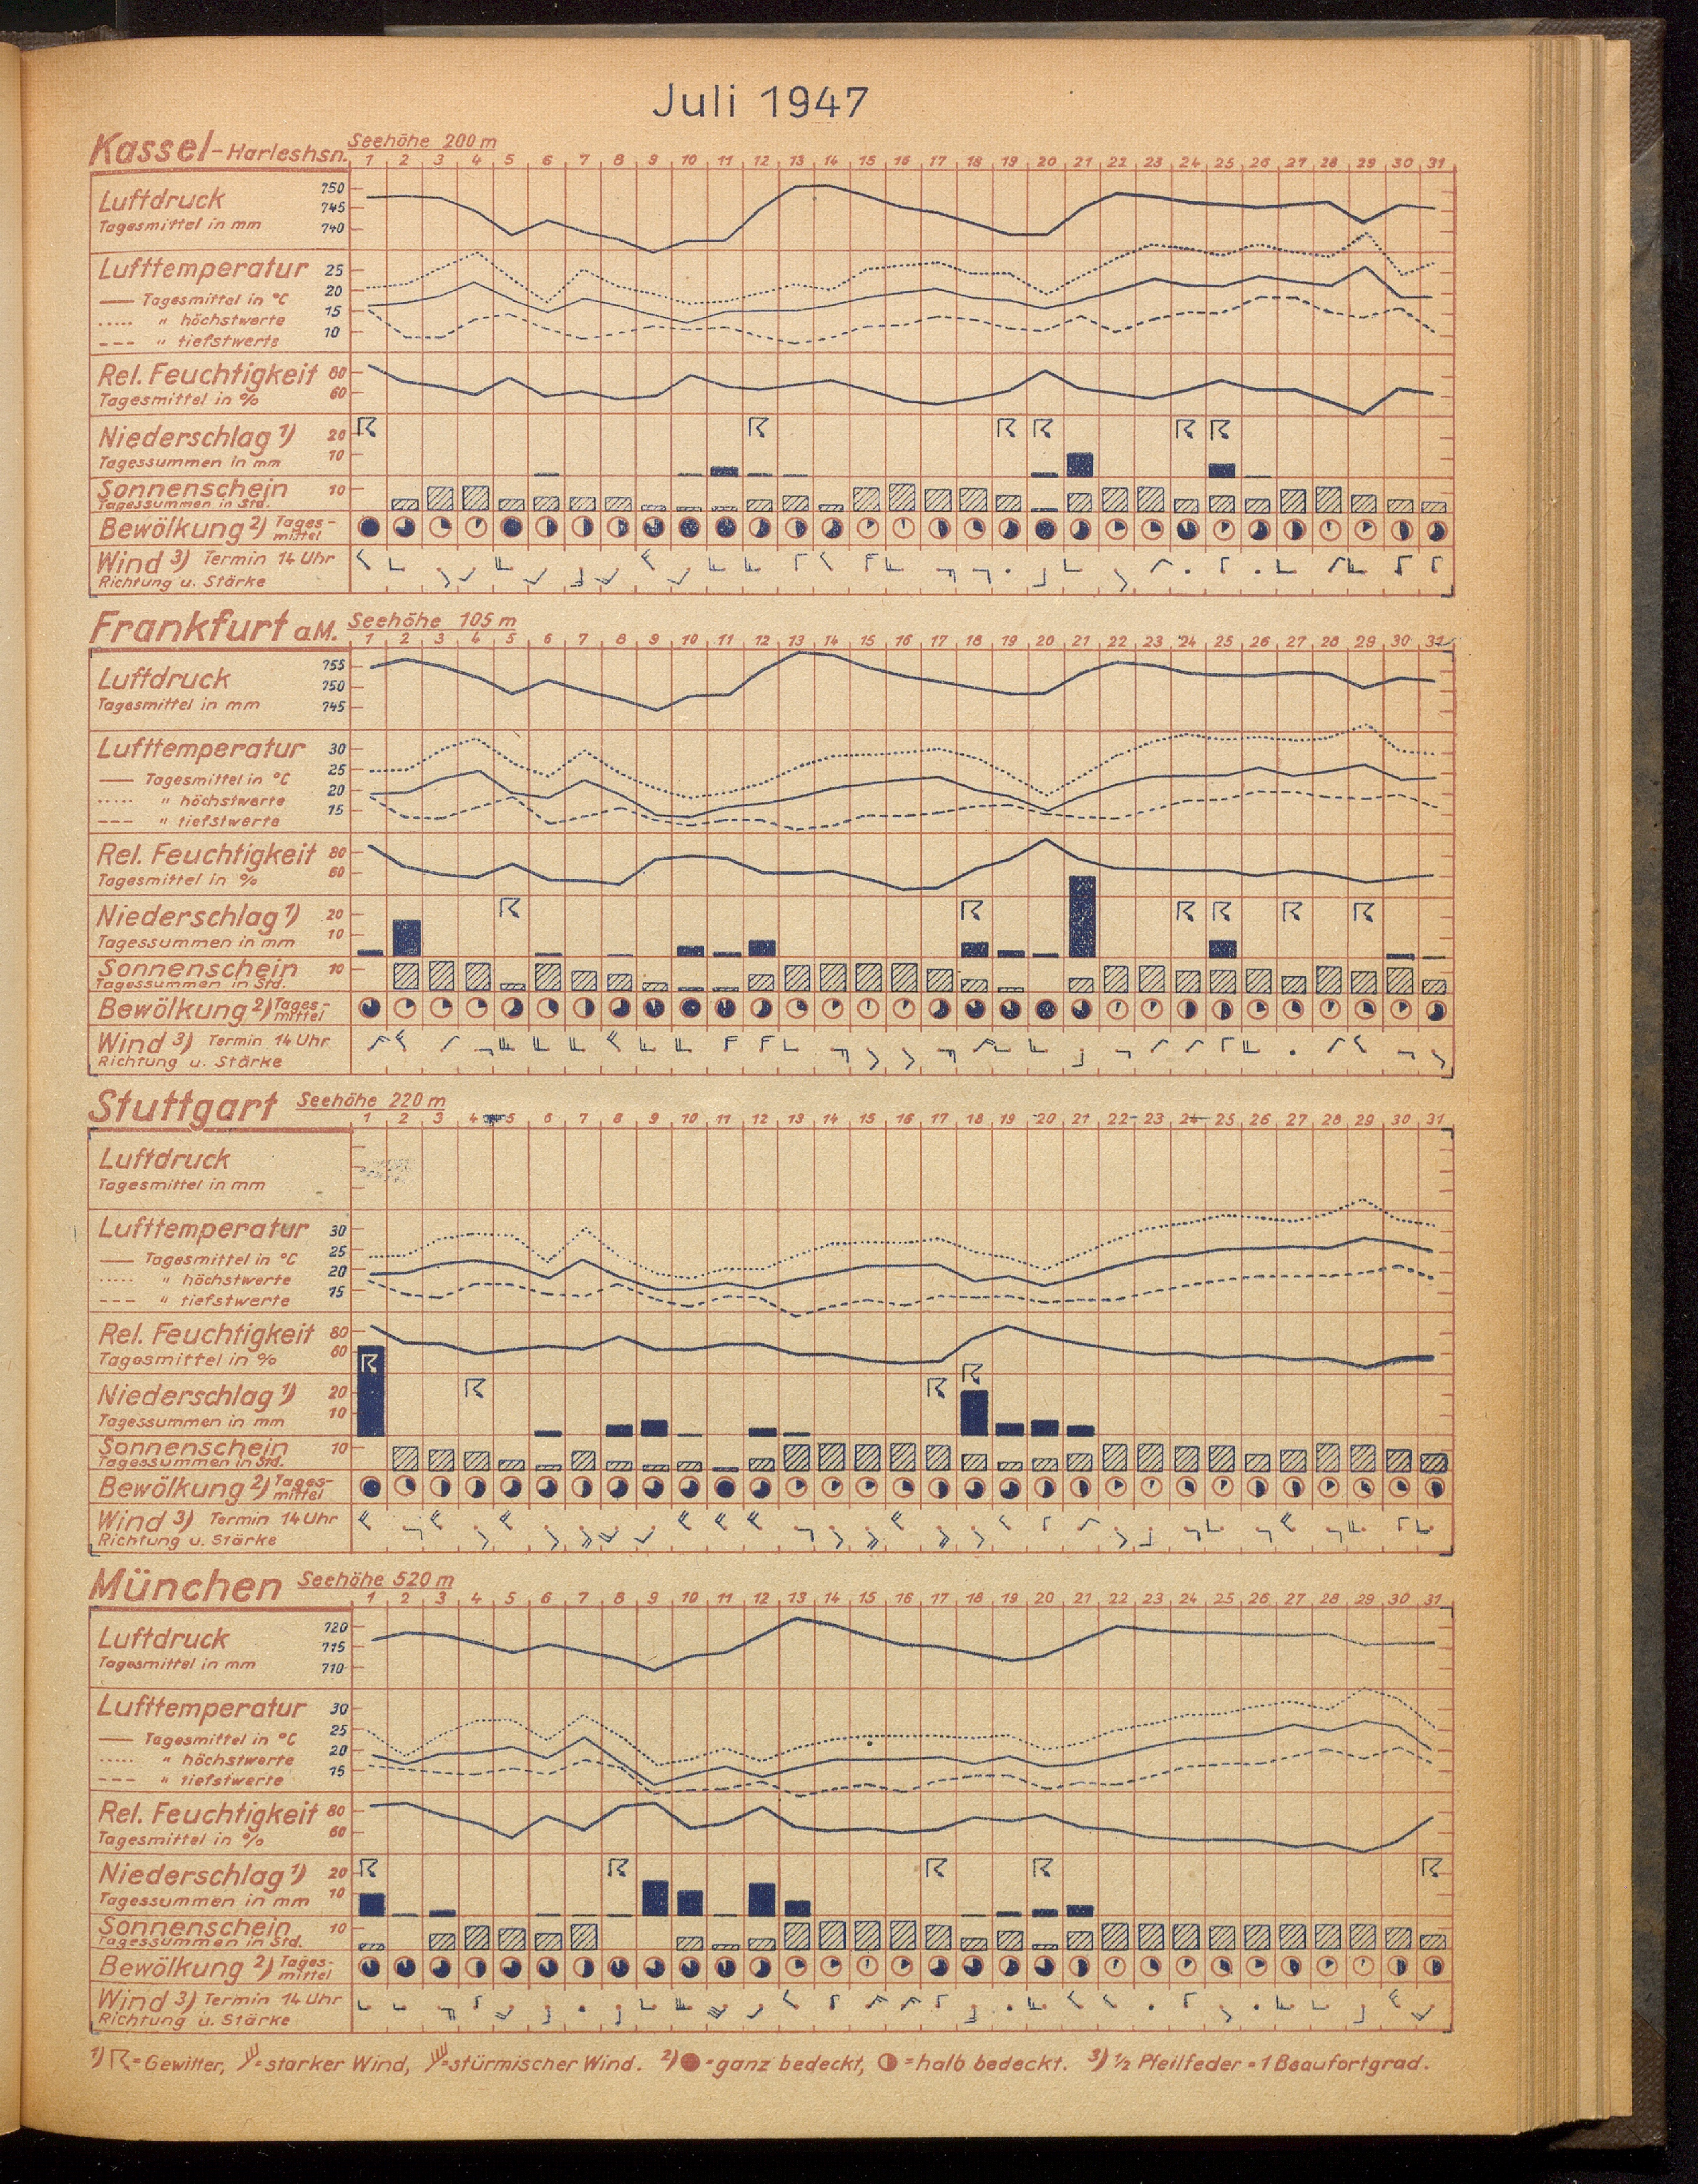 Juli 1947
Kassel-Harleshsn. Seehöhe 200 m
1 2 3 4 5 6 7 8 9 10 11 12 13 14 15 16 17 18 19 20 21 22 23 24 25 26 27 28 29 30 31
Luftdruck 750
745
Tagesmittel in mm 740
Lufttemperatur 25
Tagesmittel in °C 20
" höchstwerte 15
" tiefstwerte 10
Rel. Feuchtigkeit 80
Tagesmittel in % 60
Niederschlag 1) 20
Tagessummen in mm 10
Sonnenschein 10
Tagessummen in Std.
Bewölkung 2) Tages-
mittel
Wind 3) Termin 14 Uhr
Richtung u. Stärke
Frankfurt a.M. Seehöhe 105 m
1 2 3 4 5 6 7 8 9 10 11 12 13 14 15 16 17 18 19 20 21 22 23 24 25 26 27 28 29 30 31
Luftdruck 755
750
Tagesmittel in mm 745
Lufttemperatur 30
Tagesmittel in °C 25
" höchstwerte 20
" tiefstwerte 15
Rel. Feuchtigkeit 80
Tagesmittel in % 60
Niederschlag 1) 20
Tagessummen in mm 10
Sonnenschein 10
Tagessummen in Std.
Bewölkung 2) Tages-
mittel
Wind 3) Termin 14 Uhr
Richtung u. Stärke
Stuttgart Seehöhe 220 m
1 2 3 4 5 6 7 8 9 10 11 12 13 14 15 16 17 18 19 20 21 22 23 24 25 26 27 28 29 30 31
Luftdruck
Tagesmittel in mm
Lufttemperatur 30
Tagesmittel in °C 25
" höchstwerte 20
" tiefstwerte 15
Rel. Feuchtigkeit 80
Tagesmittel in % 60
Niederschlag 1) 20
Tagessummen in mm 10
Sonnenschein 10
Tagessummen in Std.
Bewölkung 2) Tages-
mittel
Wind 3) Termin 14 Uhr
Richtung u. Stärke
München Seehöhe 520 m
1 2 3 4 5 6 7 8 9 10 11 12 13 14 15 16 17 18 19 20 21 22 23 24 25 26 27 28 29 30 31
Luftdruck 720
715
Tagesmittel in mm 710
Lufttemperatur 30
Tagesmittel in °C 25
" höchstwerte 20
" tiefstwerte 15
Rel. Feuchtigkeit 80
Tagesmittel in % 60
Niederschlag 1) 20
Tagessummen in mm 10
Sonnenschein 10
Tagessummen in Std.
Bewölkung 2) Tages-
mittel
Wind 3) Termin 14 Uhr
Richtung u. Stärke
1) = Gewitter, = starker Wind, = stürmischer Wind. 2) = ganz bedeckt, = halb bedeckt. 3) ½ Pfeilfeder = 1 Beaufortgrad.